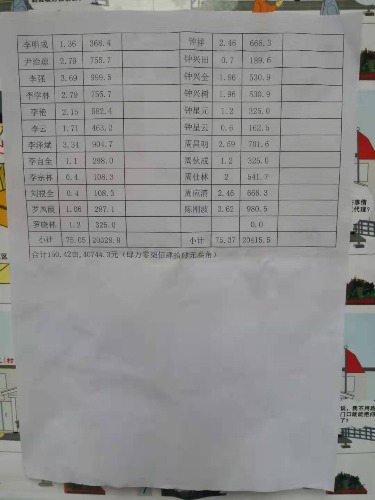 李明成 1.36 368.4 钟祥 2.46 666.3
尹治意 2.79 755.7 钟兴田 0.7 189.6
李强 3.69 999.5 钟兴全 1.96 530.9
李学林 2.79 755.7 钟兴树 1.96 530.9
李艳 2.15 582.4 钟星元 1.2 325.0
李云 1.71 463.2 钟星云 0.6 162.5
李泽斌 3.34 904.7 周昌明 2.59 701.6
李自全 1.1 298.0 周伙成 1.2 325.0
李宗林 0.4 108.3 周仕林 2 541.7
刘银全 0.4 108.3 周应清 2.46 666.3
罗凤顺 1.06 287.1 陈刚波 3.62 980.5
罗晓林 1.2 325.0 0.0
小计 75.05 20328.8 小计 75.37 20415.5
合计150.42亩,40744.3元(肆万零柒佰肆拾肆元叁角)